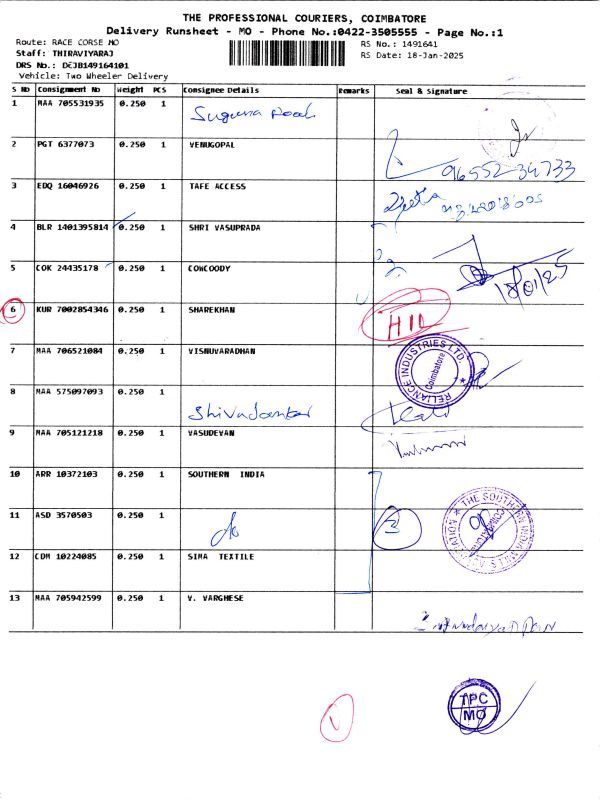 THE PROFESSIONAL COURIERS, COIMBATORE
Delivery Runsheet - MO - Phone No.:0422-3505555 - Page No.:1
Route: RACE CORSE MO
RS No.: 1491641
Staff: THIRAVIYARAJ
RS Date: 18-Jan-2025
DRS No.: DEJB149164101
Vehicle: Two Wheeler Delivery
S No Consignment No Weight PCS Consignee Details Remarks Seal & Signature
1 MAA 705531935 0.250 1 Suguna
2 PGT 6377073 0.250 1 VENUGOPAL
96552 34733
3 EDQ 16046926 0.250 1 TAFE ACCESS
4 BLR 1401395814 0.250 1 SHRI VASUPRADA
5 COK 24435178 0.250 1 COWCOODY
18/01/25
6 KUR 7002854346 0.250 1 SHAREKHAN
7 MAA 706521084 0.250 1 VISNUVARADHAN
RELIANCE INDUSTRIES LTD.
Coimbatore
8 MAA 575097093 0.250 1
9 MAA 705121218 0.250 1 VASUDEVAN
10 ARR 10372103 0.250 1 SOUTHERN INDIA
11 ASD 3570503 0.250 1
3
THE SOUTHERN INDIA MILLS ASSOCIATION
12 CDM 10224085 0.250 1 SIMA TEXTILE
13 MAA 705942599 0.250 1 V. VARGHESE
TPC
MO